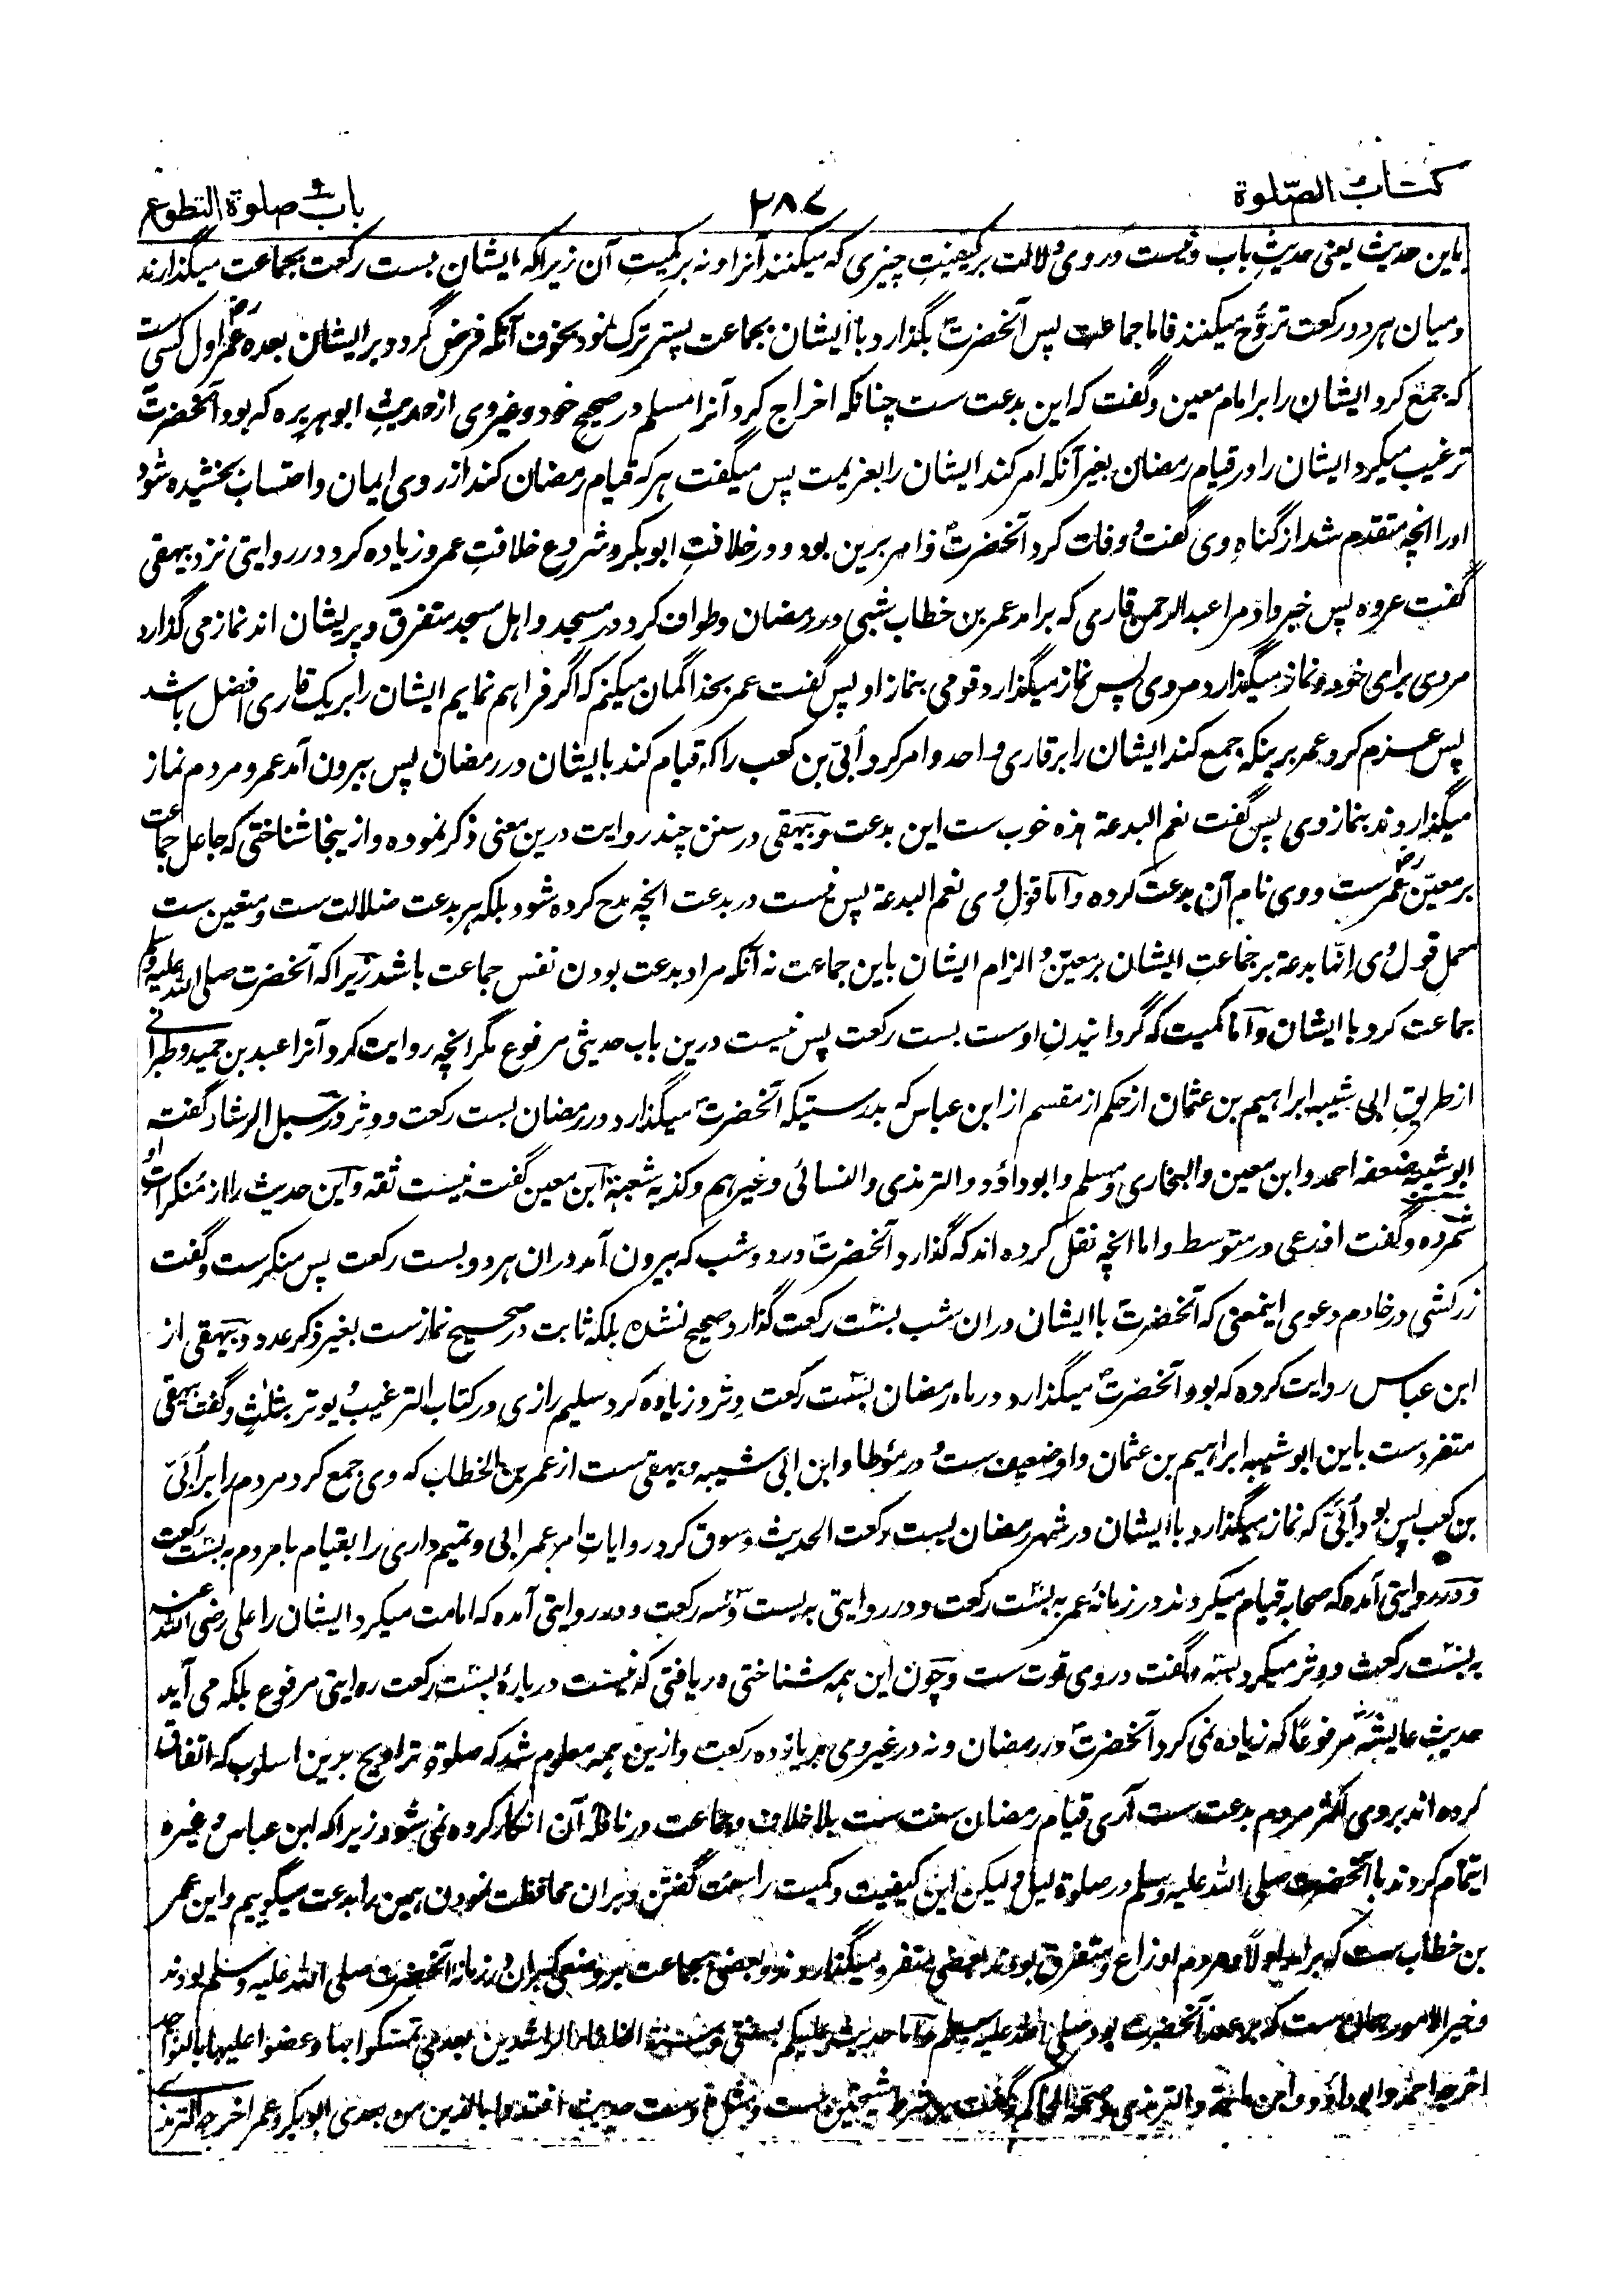 کتاب الصّلوة
۲۸۷
باب صلوة التطوع
باین حدیث یعنی حدیثِ باب و نیست در وی دلالت بر کیفیتِ چیزی که میکنند آنرا و نه بر کمیتِ آن زیراکه ایشان بست رکعت بجماعت میگذارند
و میان هر دو رکعت تروّح میکنند فاما جماعت پس آنحضرتؐ بگذارد با ایشان بجماعت پستر ترک نمود بخوف آنکه فرض گردد بر ایشان بعده عمرؓ اول کسی ست
که جمع کرد ایشان را بر امام معین و گفت که این بدعت ست چنانکه اخراج کرد آنرا مسلم در صحیح خود و غیر وی از حدیثِ ابوهریره که بود آنحضرتؐ
ترغیب میکرد ایشان را در قیام رمضان بغیر آنکه امر کند ایشان را بعزیمت پس میگفت هر که قیام رمضان کند از روی ایمان و احتساب بخشیده شود
او را انچه متقدم شد از گناهِ وی گفت و وفات کرد آنحضرتؐ و امر برین بود و در خلافتِ ابوبکر و شروع خلافتِ عمر و زیاده کرد در روایتی نزد بیهقی
گفت عروه پس خبر داد مرا عبدالرحمن قاری که برآمد عمر بن خطاب شبی در رمضان و طواف کرد در مسجد و اهل مسجد متفرق و پریشان اند نماز می گذارد
مردی برای خود و نماز میگذارد مردی پس نماز میگذارد قومی بنماز او پس گفت عمر بخدا گمان میکنم که اگر فراهم نمایم ایشان را بر یک قاری افضل باشد
پس عزم کرد عمر برینکه جمع کند ایشان را بر قاری واحد و امر کرد اُبیّ بن کعب را که قیام کند با ایشان در رمضان پس بیرون آمد عمر و مردم نماز
میگذاروند بنماز وی پس گفت نعم البدعة هذه خوب ست این بدعت و بیهقی در سنن چند روایت درین معنی ذکر نموده و از ینجا شناختی که جاعل جماعت
بر معیّن عمرؓ ست و وی نام آن بدعت کرده و اما قولِ وی نعم البدعة پس نیست در بدعت انچه مدح کرده شود بلکه هر بدعت ضلالت ست و متعین ست
حمل قول وی انّها بدعة بر جماعتِ ایشان بر معیّن و الزام ایشان باین جماعت نه آنکه مراد بدعت بودن نفس جماعت باشد زیراکه آنحضرت صلی الله علیه وسلم
جماعت کرد با ایشان و اما کمیت که گردانیدنِ اوست بست رکعت پس نیست درین باب حدیثی مرفوع مگر انچه روایت کرد آنرا عبد بن حمید و طبرانی
از طریقِ ابی شیبه ابراهیم بن عثمان از حکم از مقسم از ابن عباس که بدرستیکه آنحضرتؐ میگذارد در رمضان بست رکعت و وتر و در سبل الرشاد گفته
ابو شیبه ضعفه احمد و ابن معین والبخاری و مسلم و ابوداؤد و الترمذی و النسائی و غیرهم و کذبه شعبة ابن معین گفت نیست ثقه و این حدیث را از منکرات او
شمرده و گفت اذرعی در متوسط و اما انچه نقل کرده اند که گذارد آنحضرتؐ در دو شب که بیرون آمد دران هر دو بست رکعت پس منکرست و گفت
زرکشی در خادم دعوی اینمعنی که آنحضرتؐ با ایشان دران شب بست رکعت گذارد صحیح نشده بلکه ثابت در صحیح نمازست بغیر ذکر عدد و بیهقی از
ابن عباس روایت کرده که بود آنحضرتؐ میگذارد در ماه رمضان بست رکعت و تر و زیاده کرد سلیم رازی در کتاب الترغیب و یوتر بثلثٍ و گفت بیهقی
متفردست باین ابو شیبه ابراهیم بن عثمان و او ضعیف ست و در مؤطا و ابن ابی شیبه و بیهقی ست از عمر بن الخطاب که وی جمع کرد مردم را بر اُبَیّ
بن کعب پس بود اُبَیّ که نماز میگذارد با ایشان در شهر رمضان بست رکعت الحدیث و سوق کرد روایاتِ امر عمر ابی و تمیم داری را بقیام با مردم به بست رکعت
و در روایتی آمده که صحابه قیام میکردند در زمانهٔ عمر به بست رکعت و در روایتی به بست و سه رکعت و در روایتی آمده که امامت میکرد ایشان را علی رضی الله عنه
به بست رکعت و وتر میکرد بسه و گفت در وی قوت ست و چون این همه شناختی دریافتی که نیست دربارهٔ بست رکعت روایتی مرفوع بلکه می آید
حدیثِ عایشهؓ مرفوعًا که زیاده نمی کرد آنحضرتؐ در رمضان و نه در غیر وی بر یازده رکعت و ازین همه معلوم شد که صلوةِ تراویح برین اسلوب که اتفاق
کرده اند بروی اکثر مردم بدعت ست آری قیام رمضان سنت ست بلا خلاف و جماعت در نافلهٔ آن انکار کرده نمی شود زیراکه ابن عباس و غیره
ایتمام کردند با آنحضرت صلی الله علیه وسلم در صلوة لیل و لیکن این کیفیت و کمیت را سنت گفتن و بران محافظت نمودن همین را بدعت میگوییم و این عمر
بن خطاب ست که برآمد اولًا و مردم اوزاع و متفرق بودند بعضی منفرد میگذاردند و بعضی بجماعت بر وضعی که بران در زمانهٔ آنحضرت صلی الله علیه وسلم بودند
و خیر الامور همان ست که بر عهد آنحضرت بود صلی الله علیه وسلم و اما حدیث علیکم بسنتی و سنة الخلفاء الراشدین بعدی تمسکوا بها و عضوا علیها بالنواجذ
اخرجه احمد و ابوداؤد و ابن ماجة و الترمذی و صححه الحاکم و گفت بر شرط شیخین ست و مثل اوست حدیث اقتدوا بالذین من بعدی ابوبکر و عمر اخرجه الترمذی